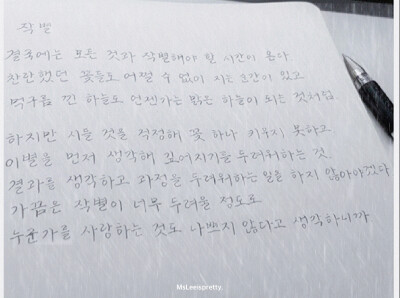 작별
결국에는 모든 것과 작별해야 할 시간이 온다
찬란했던 꽃들도 어쩔 수 없이 지는 순간이 있고
먹구름 낀 하늘도 언젠가는 맑은 하늘이 되는 것처럼.
하지만 시들 것을 걱정해 꽃 하나 키우지 못하고
이별을 먼저 생각해 깊어지기를 두려워하는 것.
결과를 생각하고 과정을 두려워하는 일을 하지 않아야겠다
가끔은 작별이 너무 두려울 정도로
누군가를 사랑하는 것도 나쁘지 않다고 생각하니까
MsLeespretty.